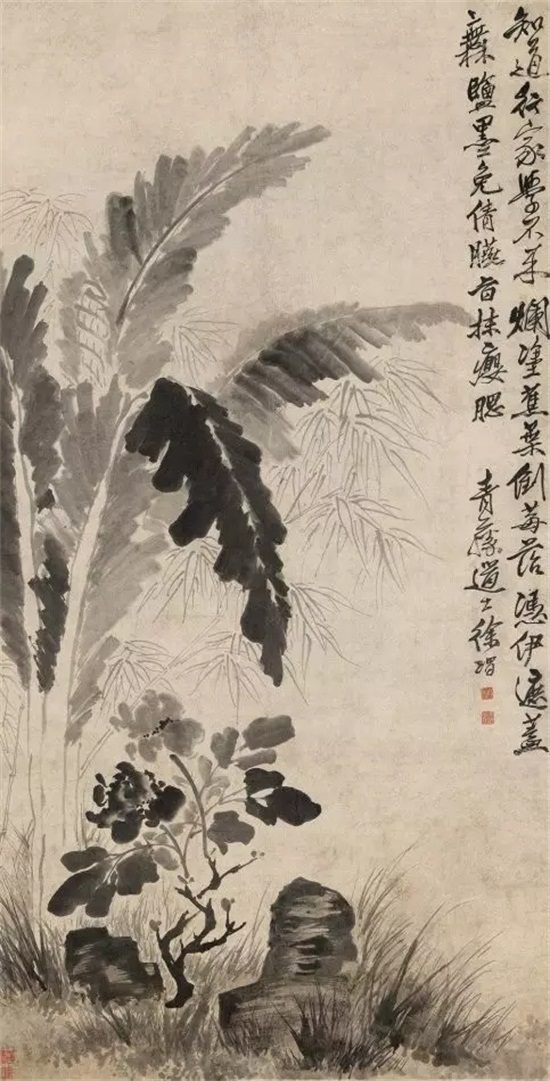 知道行家學不来爛塗蕉葉倒莓苔憑伊遮蓋
無鹽墨免倩臙脂抹癭腮　青藤道士徐渭